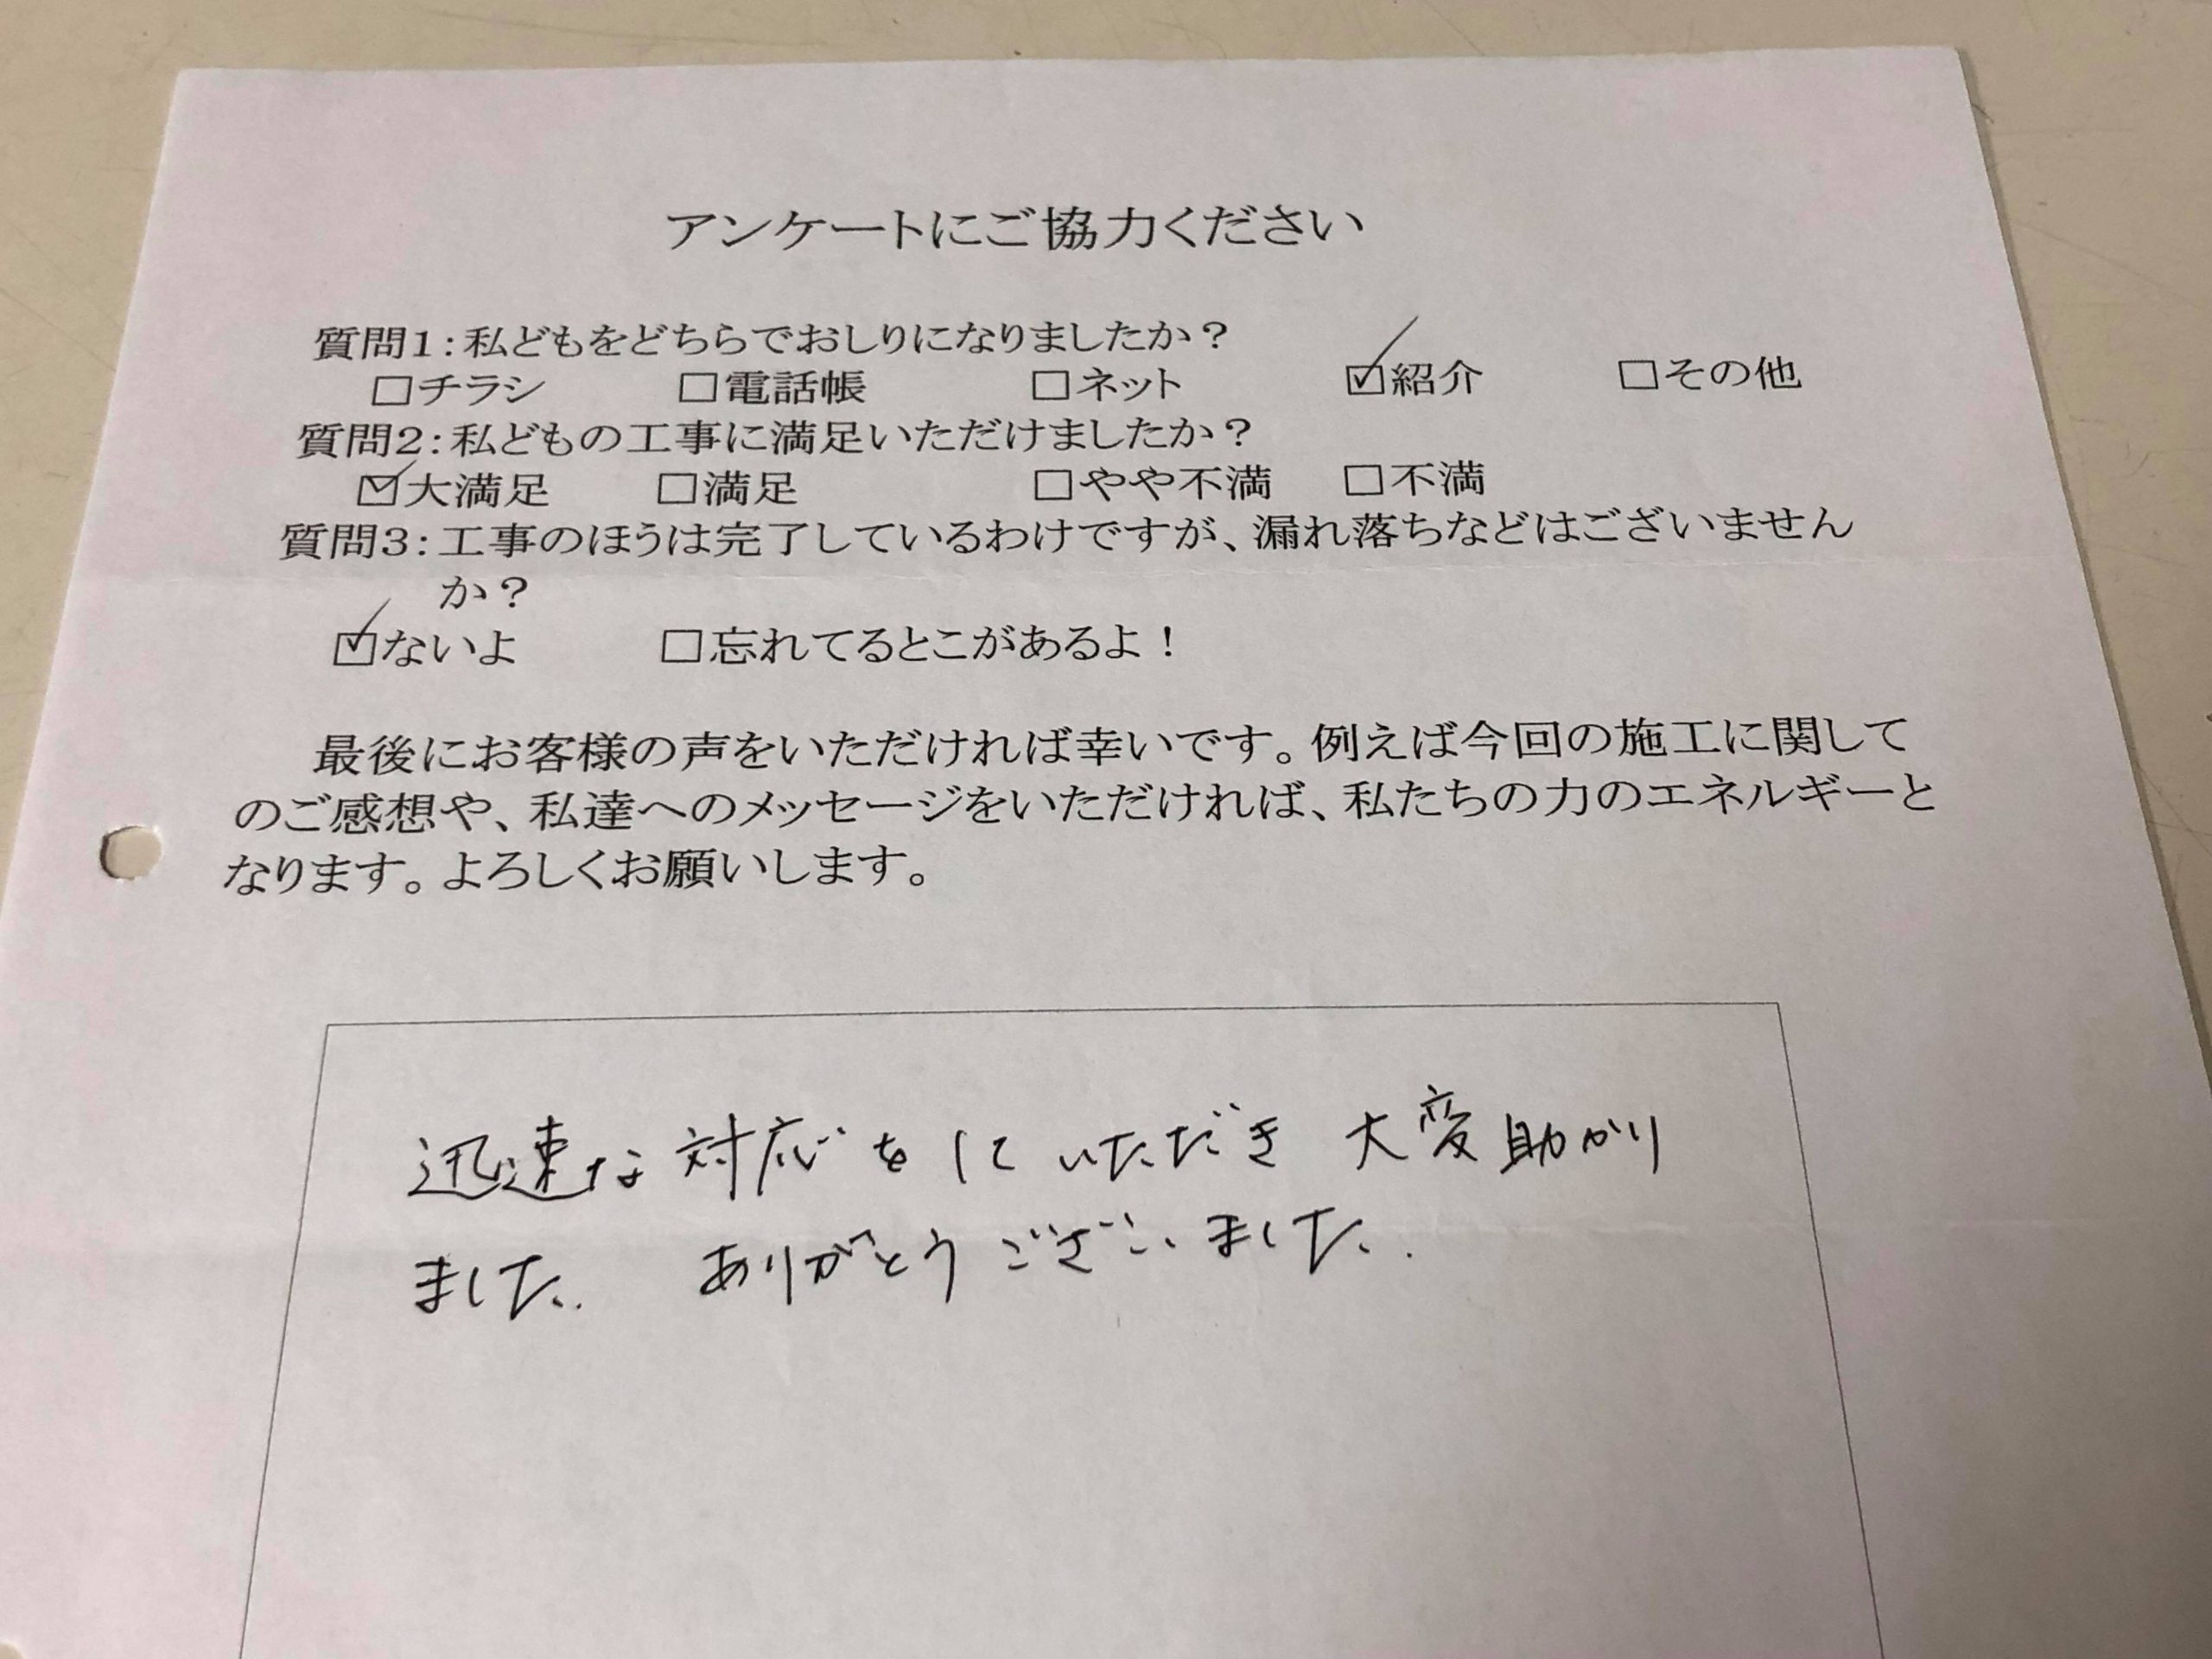 アンケートにご協力ください
質問1:私どもをどちらでおしりになりましたか？
□チラシ □電話帳 □ネット ☑紹介 □その他
質問2:私どもの工事に満足いただけましたか？
☑大満足 □満足 □やや不満 □不満
質問3:工事のほうは完了しているわけですが、漏れ落ちなどはございません
か？
☑ないよ □忘れてるとこがあるよ！
最後にお客様の声をいただければ幸いです。例えば今回の施工に関して
のご感想や、私達へのメッセージをいただければ、私たちの力のエネルギーと
なります。よろしくお願いします。
迅速な対応をしていただき 大変助かり
ました. ありがとうございました.